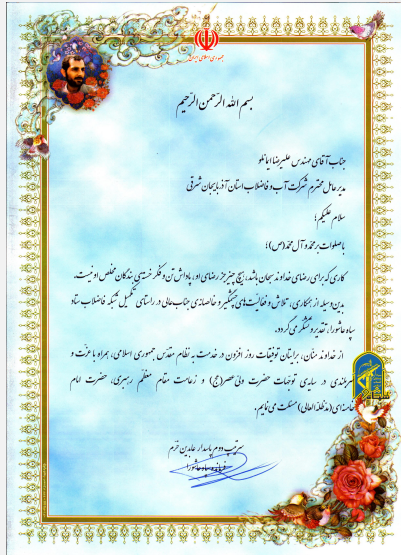 جمهوری اسلامی ایران
بسم الله الرّحمن الرّحیم
جناب آقای مهندس علیرضا ایمانلو
مدیر عامل محترم شرکت آب و فاضلاب استان آذربایجان شرقی
سلام علیکم؛
با صلوات بر محمد و آل محمد(ص)؛
کاری که برای رضای خداوند سبحان باشد، هیچ چیز جز رضای او، پاداش تن و فکر خسته‌ی بندگان مخلص او نیست.
بدین وسیله از همکاری، تلاش و فعالیت‌های چشمگیر و خالصانه‌ی جناب‌عالی در راستای تکمیل شبکه فاضلاب ستاد
سپاه عاشورا، تقدیر و تشکر می‌گردد.
از خداوند منان، برایتان توفیقات روز افزون در خدمت به نظام مقدس جمهوری اسلامی، همراه با عزّت و
سربلندی در سایه‌ی توجّهات حضرت ولی‌عصر(عج) و زعامت مقام معظّم رهبری، حضرت امام
خامنه‌ای(مدّظلّه‌العالی) مسئلت می‌نمایم.
سرتیپ دوم پاسدار عابدین خرّم
فرمانده سپاه عاشورا